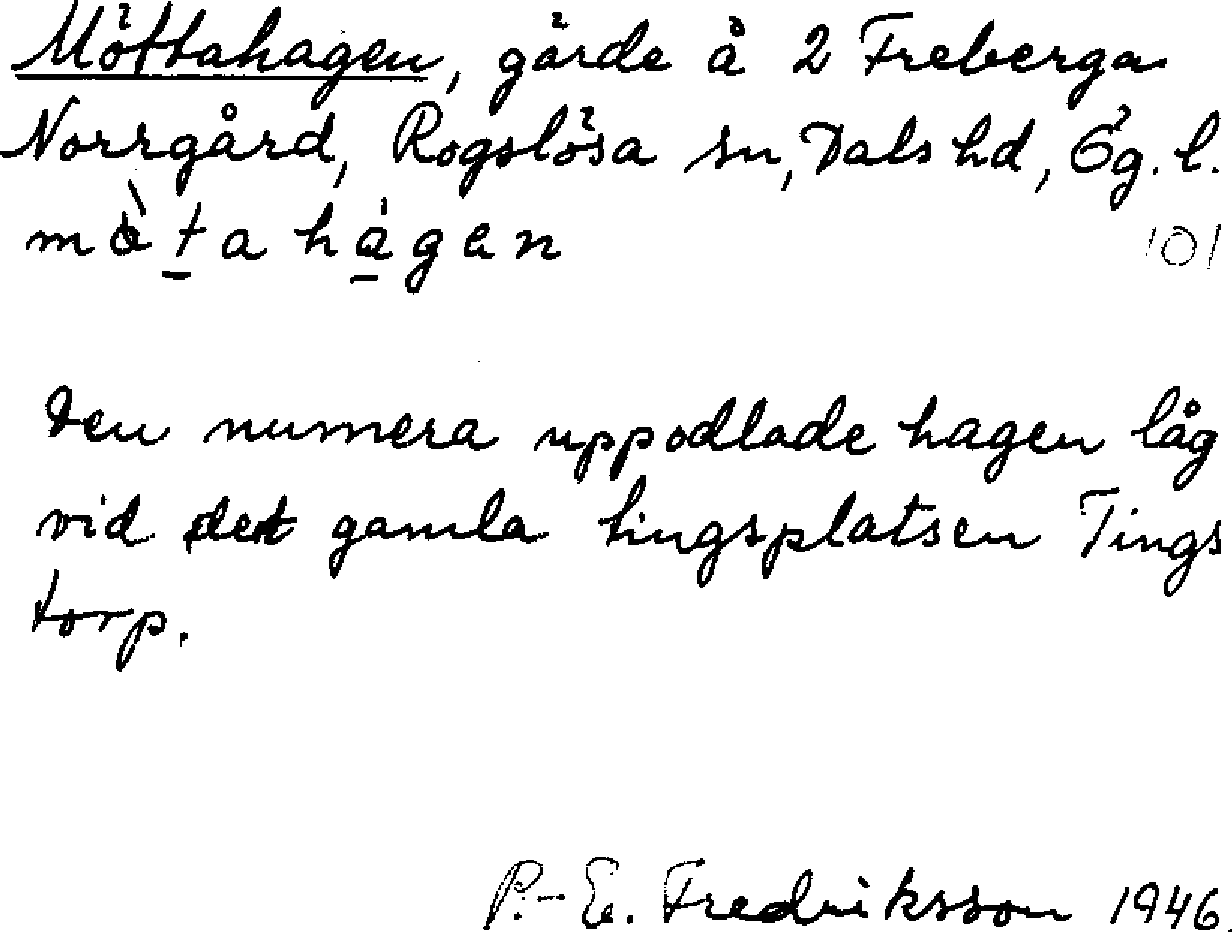 Möttahagen, gärde å 2 Freberga
Norrgård, Rogslösa sn, Dals hd, Ög. l.
mòtahágen 101
Den numera uppodlade hagen låg
vid det gamla tingsplatsen Tings
torp.
P.-E. Fredriksson 1946.